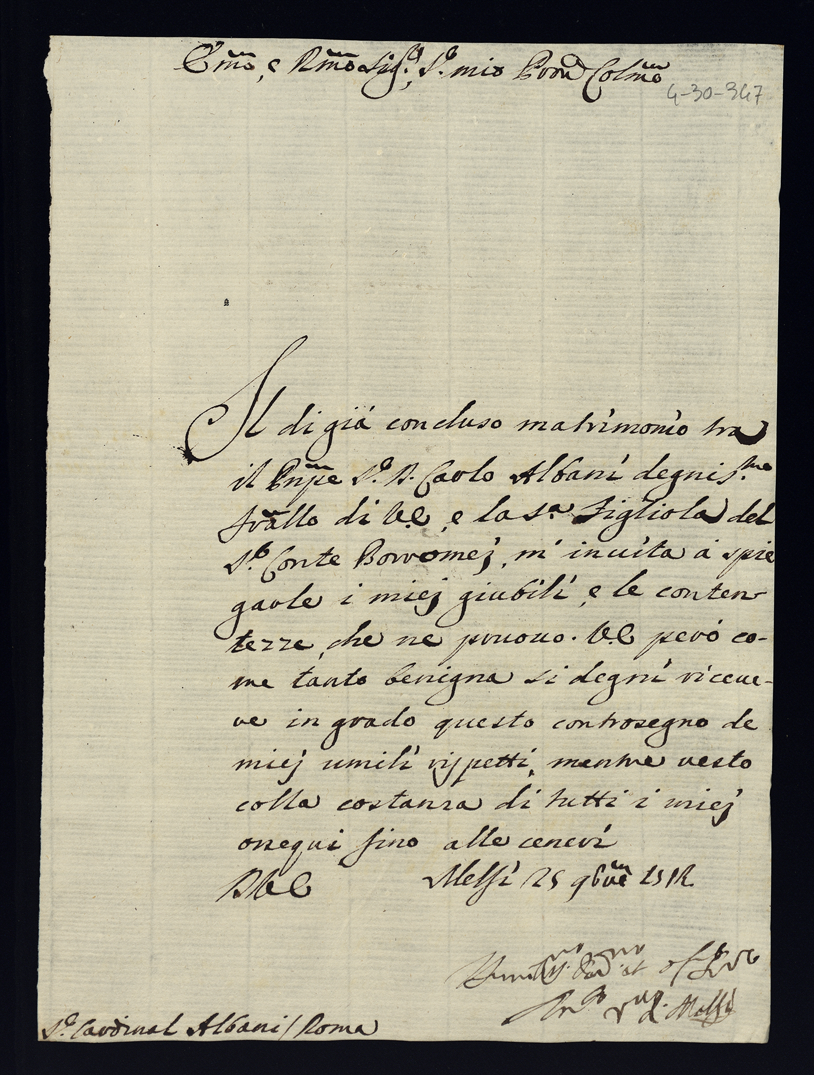 Em̃o, e Rm̃o Sig.r, S.r mio Pron̄ Colm̃o
4-30-347
Il di già concluso matrimonio tra
il Pnpe S.r D. Carlo Albani degnis.mo
frãllo di V.E, e la S.ra Figliola del
S.r Conte Borromej, m'inuita à spie
garle i miej giubili, e le conten-
tezze, che ne pruouo. V.E però co-
me tanto benigna si degni riceue-
re in grado questo controsegno de
miej umili rispetti, mentre resto
colla costanza di tutti i miej
ossequi fino alle ceneri
D V E Melfi 25 9bre
Melfi
S.r Cardinal Albani / Roma